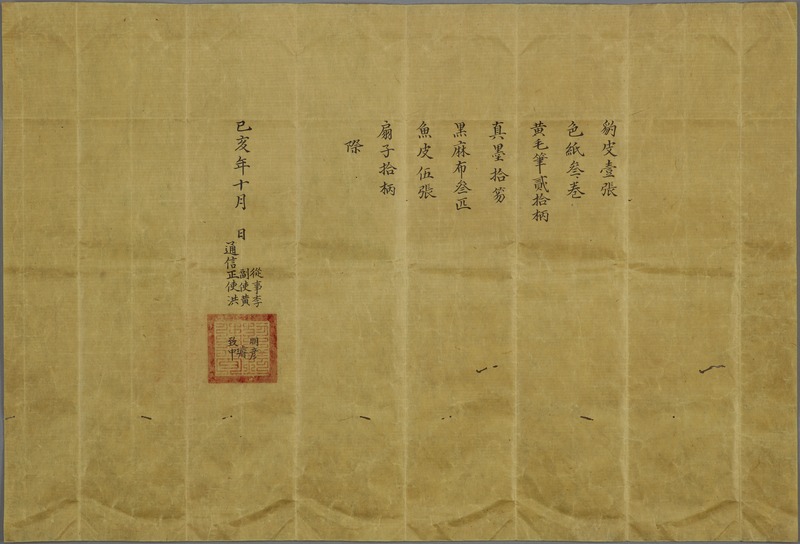 豹皮壹張
色紙叄卷
黃毛筆貳拾柄
真墨拾笏
黑麻布叄匹
魚皮伍張
扇子拾柄
際
己亥年十月 日
從事李明彥
副使黃璿
通信正使洪致中